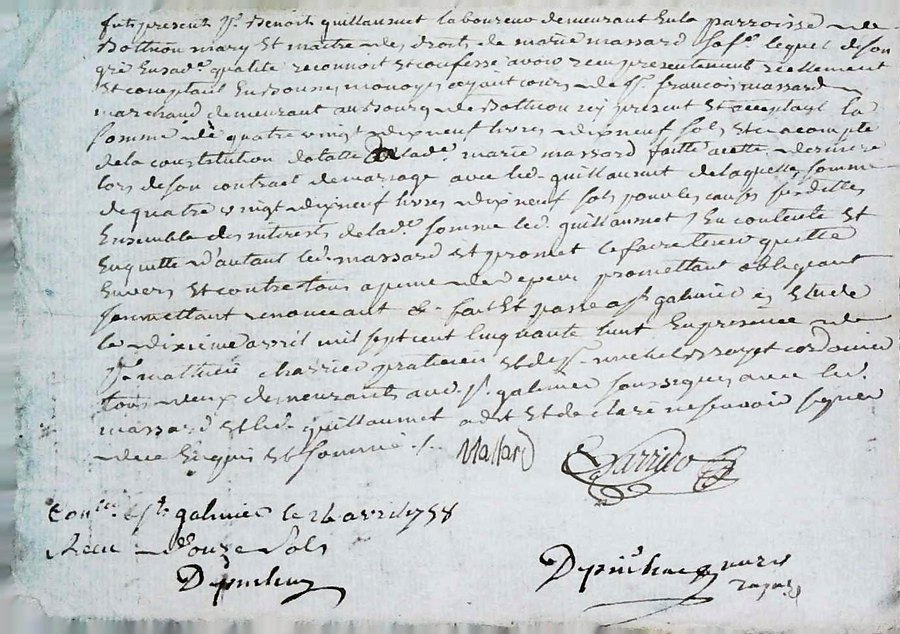 fut present Sr. Benoit guillaumet laboureur demeurant en la parroisse de
Bothéon mary et maitre des droits de marie massard sa fe. lequel de son
gré en sa de. qualité reconnoit et confesse avoir reçu presentement réellement
et comptant en bonne monoye ayant cours de Sr. francois massard
marchand demeurant au bourg de Bothéon icy present et acceptant la
somme de quatre vingt dix neuf livres dix neuf sols et ce a compte
de la constitution de lade. marie massard faitte a cette derniere
lors de son contract de mariage avec led. guillaumet de laquelle somme
de quatre vingt dix neuf livres dix neuf sols pour les causes susdittes
Ensemble des interests de lade. somme led. guillaumet s'en contente et
en quitte d'autant led. massard et promet le faire tenir quitte
envers et contre tous a peine de depens promettant obligeant
soumettant renonceant &. fait et passé a St. galmier es etude
le dixieme avril mil sept cent cinquante huit en presence de
Sr. mathieu charrier praticien et de Sr. michel cordonier
tous deux demeurants aud. St. galmier soussignés avec led.
massard et led. guillaumet a dit et declaré ne scavoir signer
de ce enquis et sommé
Massard
Conlé. a St. galmier le 24 avril 1758
Recu douze sols